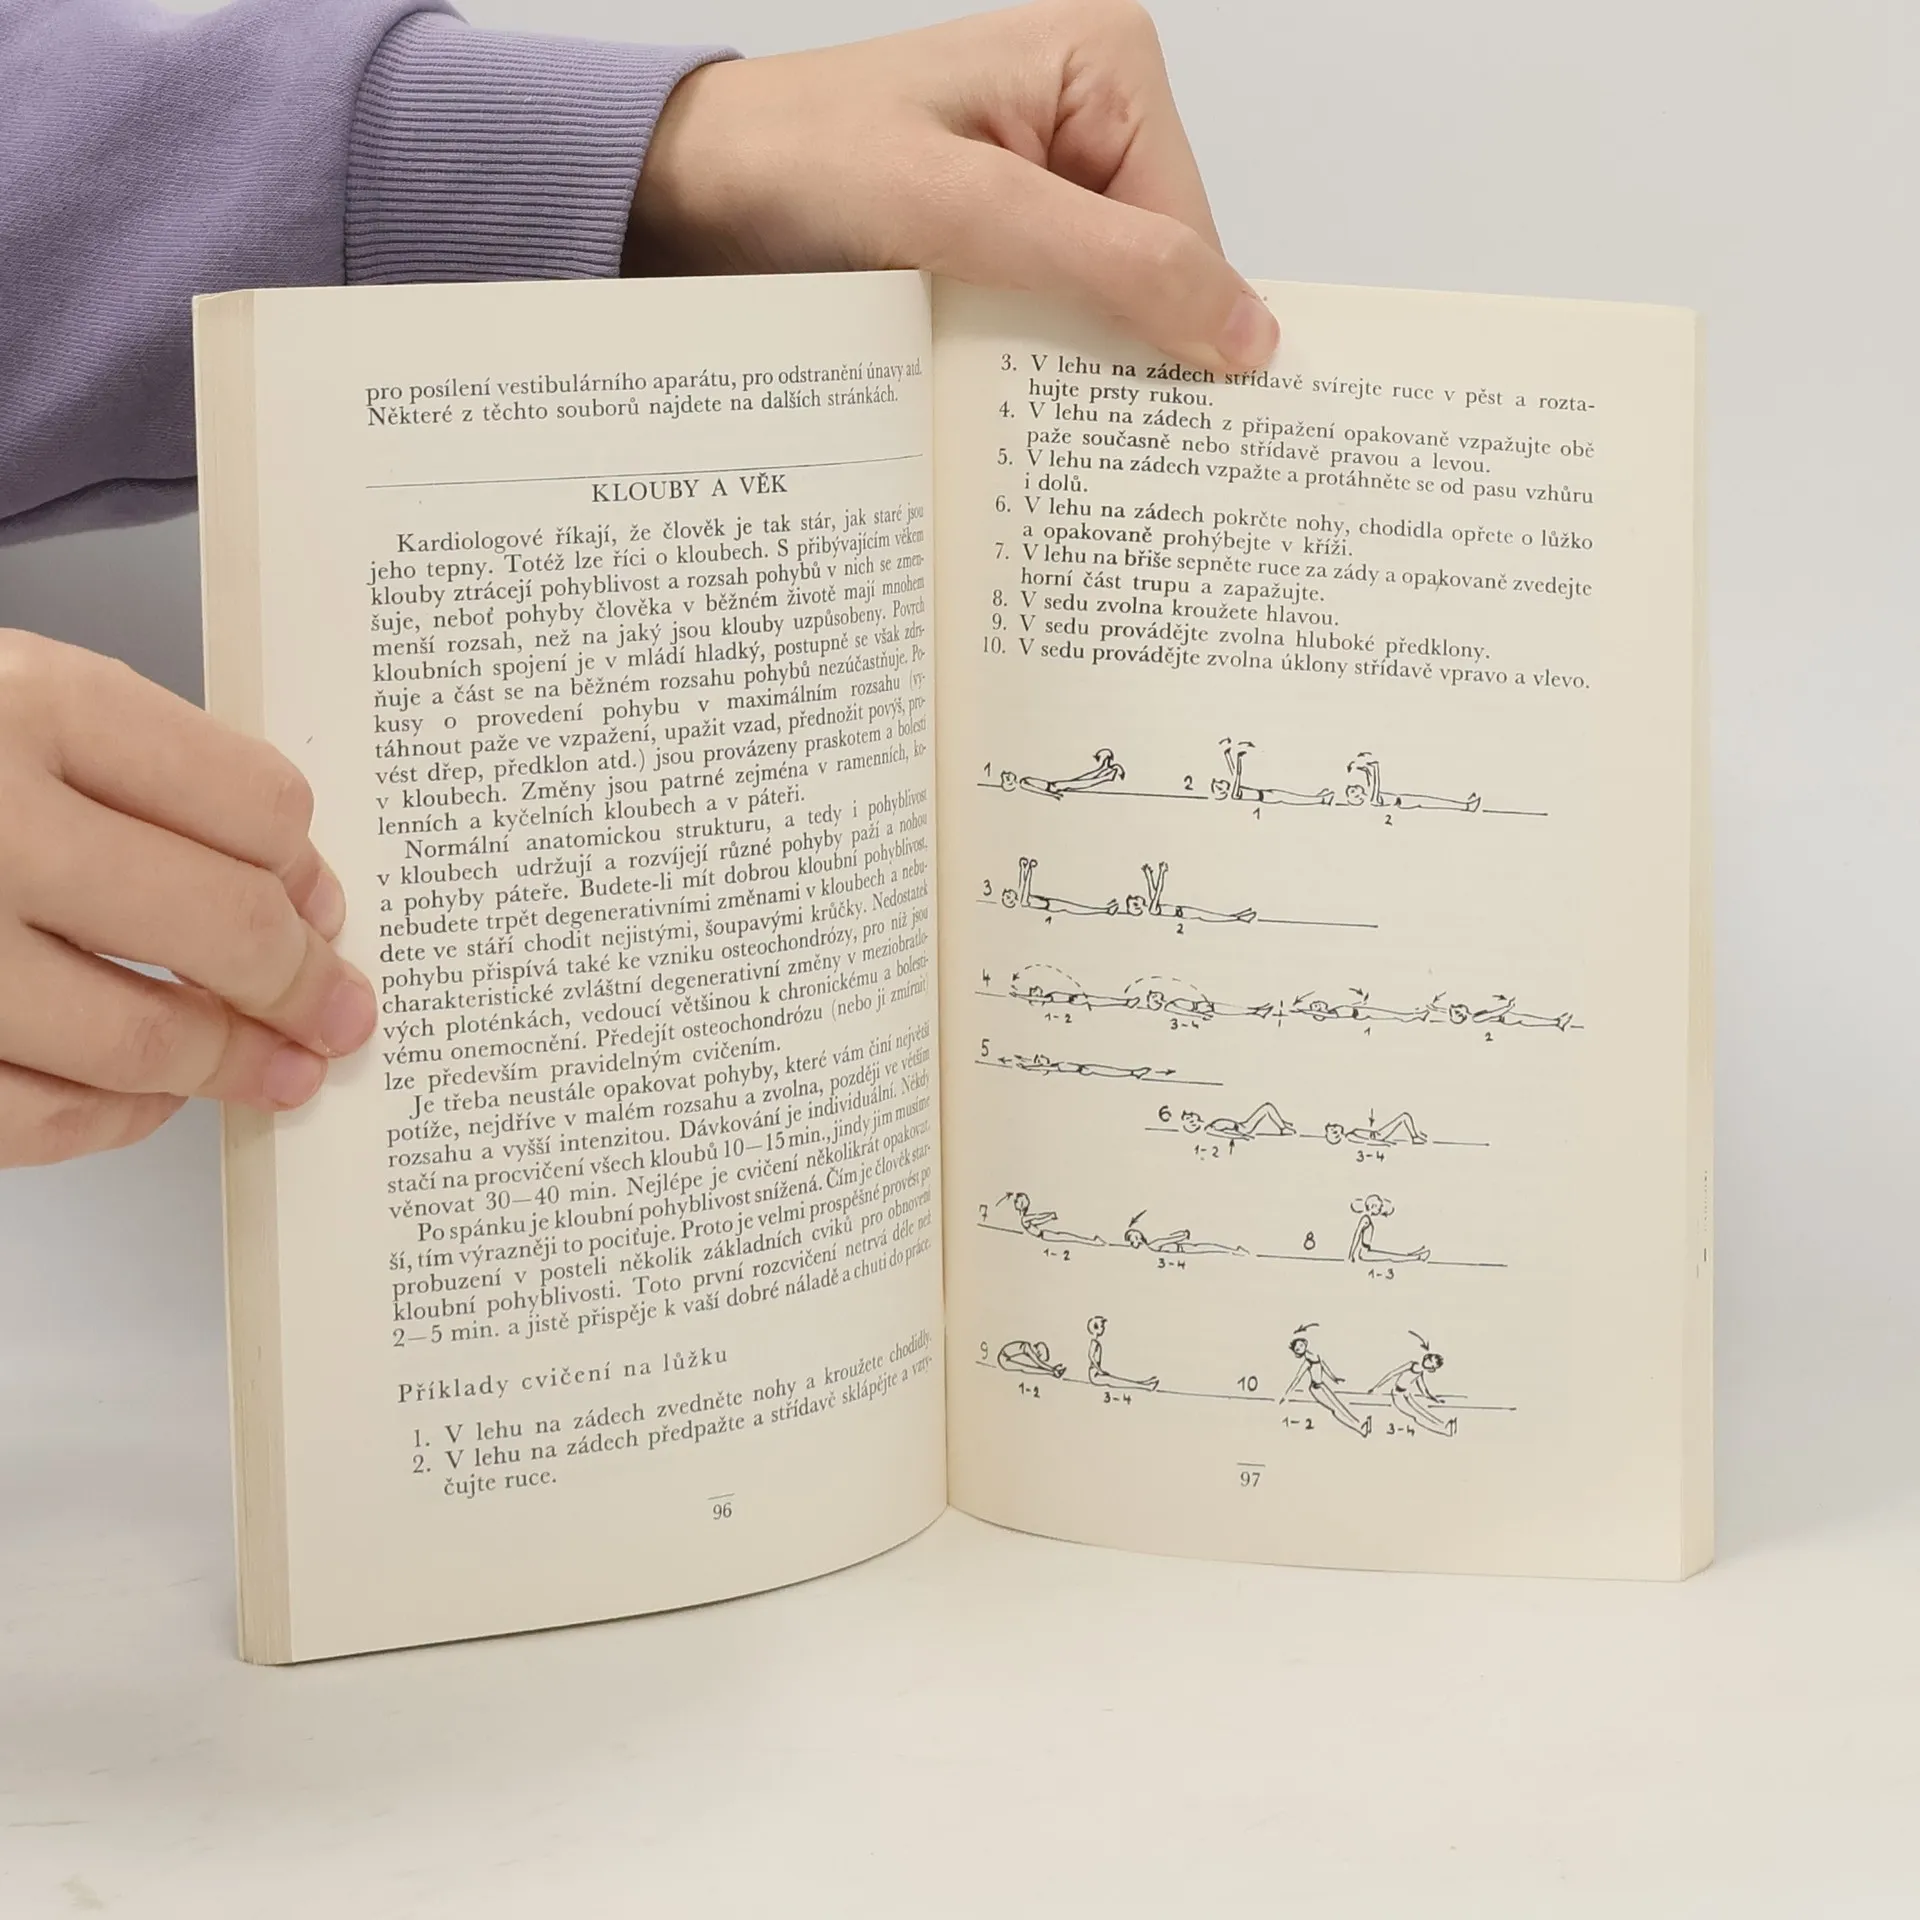 pro posílení vestibulárního aparátu, pro odstranění únavy atd.
Některé z těchto souborů najdete na dalších stránkách.
KLOUBY A VĚK
Kardiologové říkají, že člověk je tak stár, jak staré jsou
jeho tepny. Totéž lze říci o kloubech. S přibývajícím věkem
klouby ztrácejí pohyblivost a rozsah pohybů v nich se zmen-
šuje, neboť pohyby člověka v běžném životě mají mnohem
menší rozsah, než na jaký jsou klouby uzpůsobeny. Povrch
kloubních spojení je v mládí hladký, postupně se však zdrs-
ňuje a část se na běžném rozsahu pohybů nezúčastňuje. Po-
kusy o provedení pohybu v maximálním rozsahu (vy-
táhnout paže ve vzpažení, upažit vzad, přednožit povýš, pro-
vést dřep, předklon atd.) jsou provázeny praskotem a bolestí
v kloubech. Změny jsou patrné zejména v ramenních, ko-
lenních a kyčelních kloubech a v páteři.
Normální anatomickou strukturu, a tedy i pohyblivost
v kloubech udržují a rozvíjejí různé pohyby paží a nohou
a pohyby páteře. Budete-li mít dobrou kloubní pohyblivost,
nebudete trpět degenerativními změnami v kloubech a nebu-
dete ve stáří chodit nejistými, šoupavými krůčky. Nedostatek
pohybu přispívá také ke vzniku osteochondrózy, pro níž jsou
charakteristické zvláštní degenerativní změny v meziobratlo-
vých ploténkách, vedoucí většinou k chronickému a bolesti-
vému onemocnění. Předejít osteochondrózu (nebo ji zmírnit)
lze především pravidelným cvičením.
Je třeba neustále opakovat pohyby, které vám činí největší
potíže, nejdříve v malém rozsahu a zvolna, později ve větším
rozsahu a vyšší intenzitou. Dávkování je individuální. Někdy
stačí na procvičení všech kloubů 10—15 min., jindy jim musíme
věnovat 30—40 min. Nejlépe je cvičení několikrát opakovat.
Po spánku je kloubní pohyblivost snížená. Čím je člověk star-
ší, tím výrazněji to pociťuje. Proto je velmi prospěšné provést po
probuzení v posteli několik základních cviků pro obnovení
kloubní pohyblivosti. Toto první rozcvičení netrvá déle než
2—5 min. a jistě přispěje k vaší dobré náladě a chuti do práce.
Příklady cvičení na lůžku
1. V lehu na zádech zvedněte nohy a kroužete chodidly.
2. V lehu na zádech předpažte a střídavě sklápějte a vzty-
čujte ruce.
96
3. V lehu na zádech střídavě svírejte ruce v pěst a rozta-
hujte prsty rukou.
4. V lehu na zádech z připažení opakovaně vzpažujte obě
paže současně nebo střídavě pravou a levou.
5. V lehu na zádech vzpažte a protáhněte se od pasu vzhůru
i dolů.
6. V lehu na zádech pokrčte nohy, chodidla opřete o lůžko
a opakovaně prohýbejte v kříži.
7. V lehu na břiše sepněte ruce za zády a opakovaně zvedejte
horní část trupu a zapažujte.
8. V sedu zvolna kroužete hlavou.
9. V sedu provádějte zvolna hluboké předklony.
10. V sedu provádějte zvolna úklony střídavě vpravo a vlevo.
1 2
1 2
3
1 2
4
1-2 3-4 1 2
5
6
1-2 3-4
7 8
1-2 3-4 1-3
9 10
1-2 3-4 1-2 3-4
97